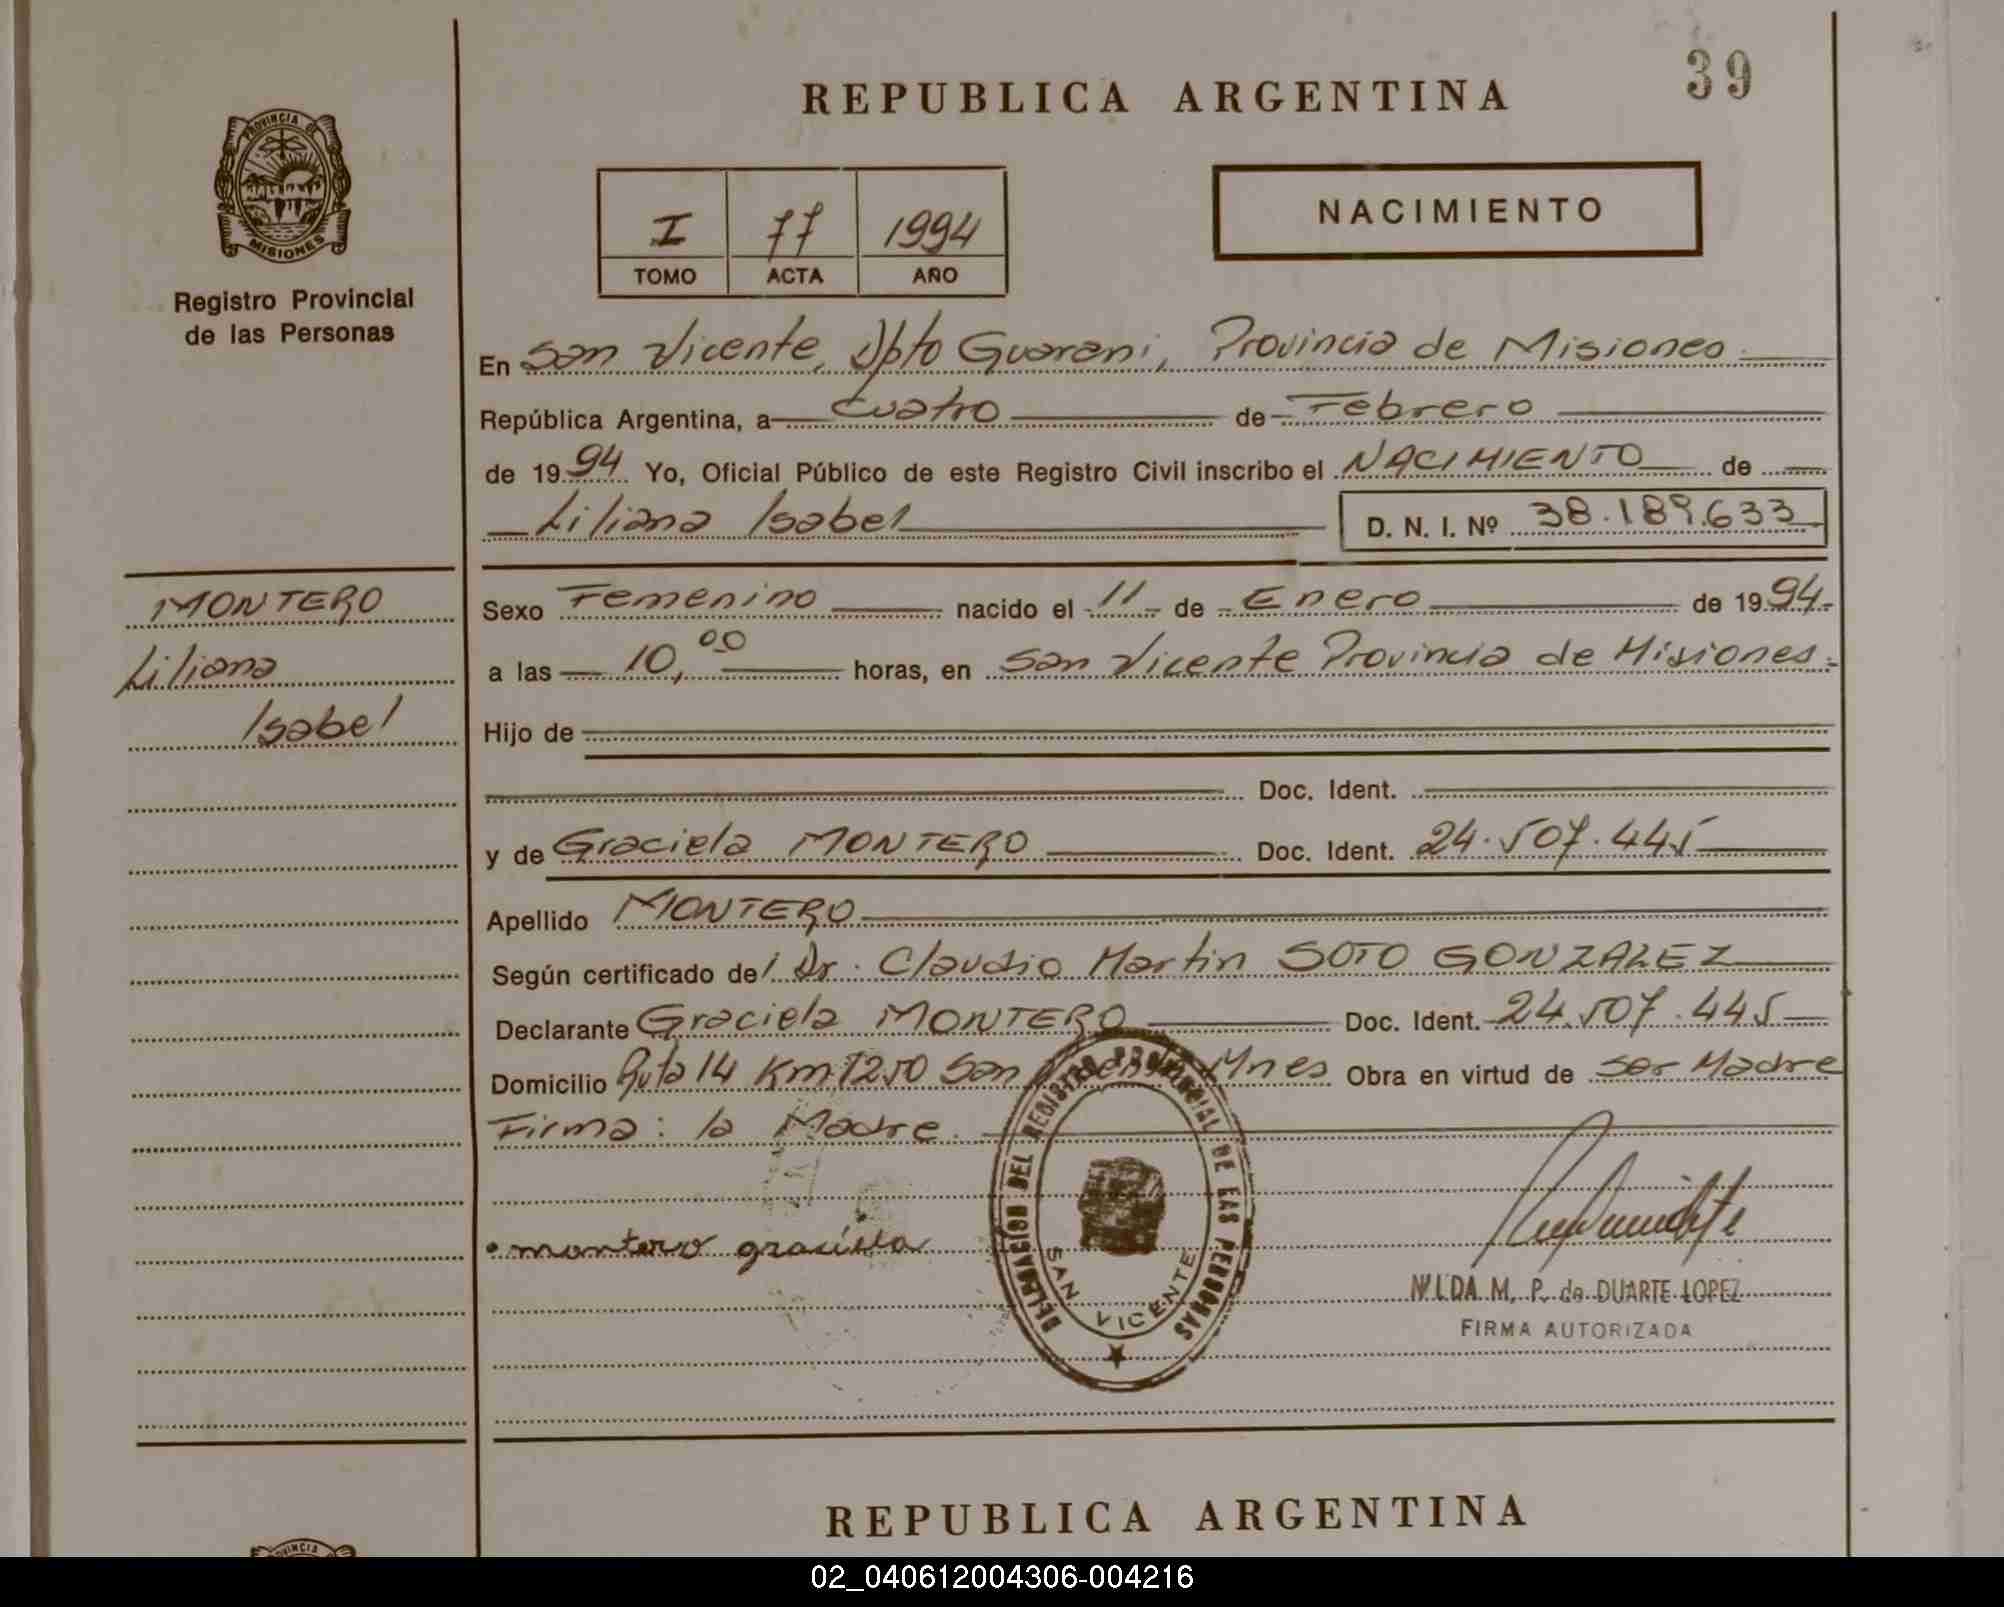 39
REPUBLICA ARGENTINA
PROVINCIA DE
MISIONES
Registro Provincial
de las Personas
I 77 1994
TOMO ACTA AÑO
NACIMIENTO
En San Vicente, Dpto Guarani, Provincia de Misiones
República Argentina, a Cuatro de Febrero
de 1994 Yo, Oficial Público de este Registro Civil inscribo el NACIMIENTO de
Liliana Isabel D. N. I. Nº 38.189.633
MONTERO
Liliana
Isabel
Sexo Femenino nacido el 11 de Enero de 1994
a las 10,00 horas, en San Vicente Provincia de Misiones.
Hijo de
Doc. Ident.
y de Graciela MONTERO Doc. Ident. 24.507.445
Apellido MONTERO
Según certificado del Dr. Claudio Martin SOTO GONZALEZ
Declarante Graciela MONTERO Doc. Ident. 24.507.445
Domicilio Ruta 14 Km 1250 San Mnes Obra en virtud de ser Madre
Firma: la Madre.
DELEGACIÓN DEL REGISTRO PROVINCIAL DE LAS PERSONAS
SAN VICENTE
montero graciela
NILDA M. P. de DUARTE LOPEZ
FIRMA AUTORIZADA
REPUBLICA ARGENTINA
PROVINCIA
02_040612004306-004216